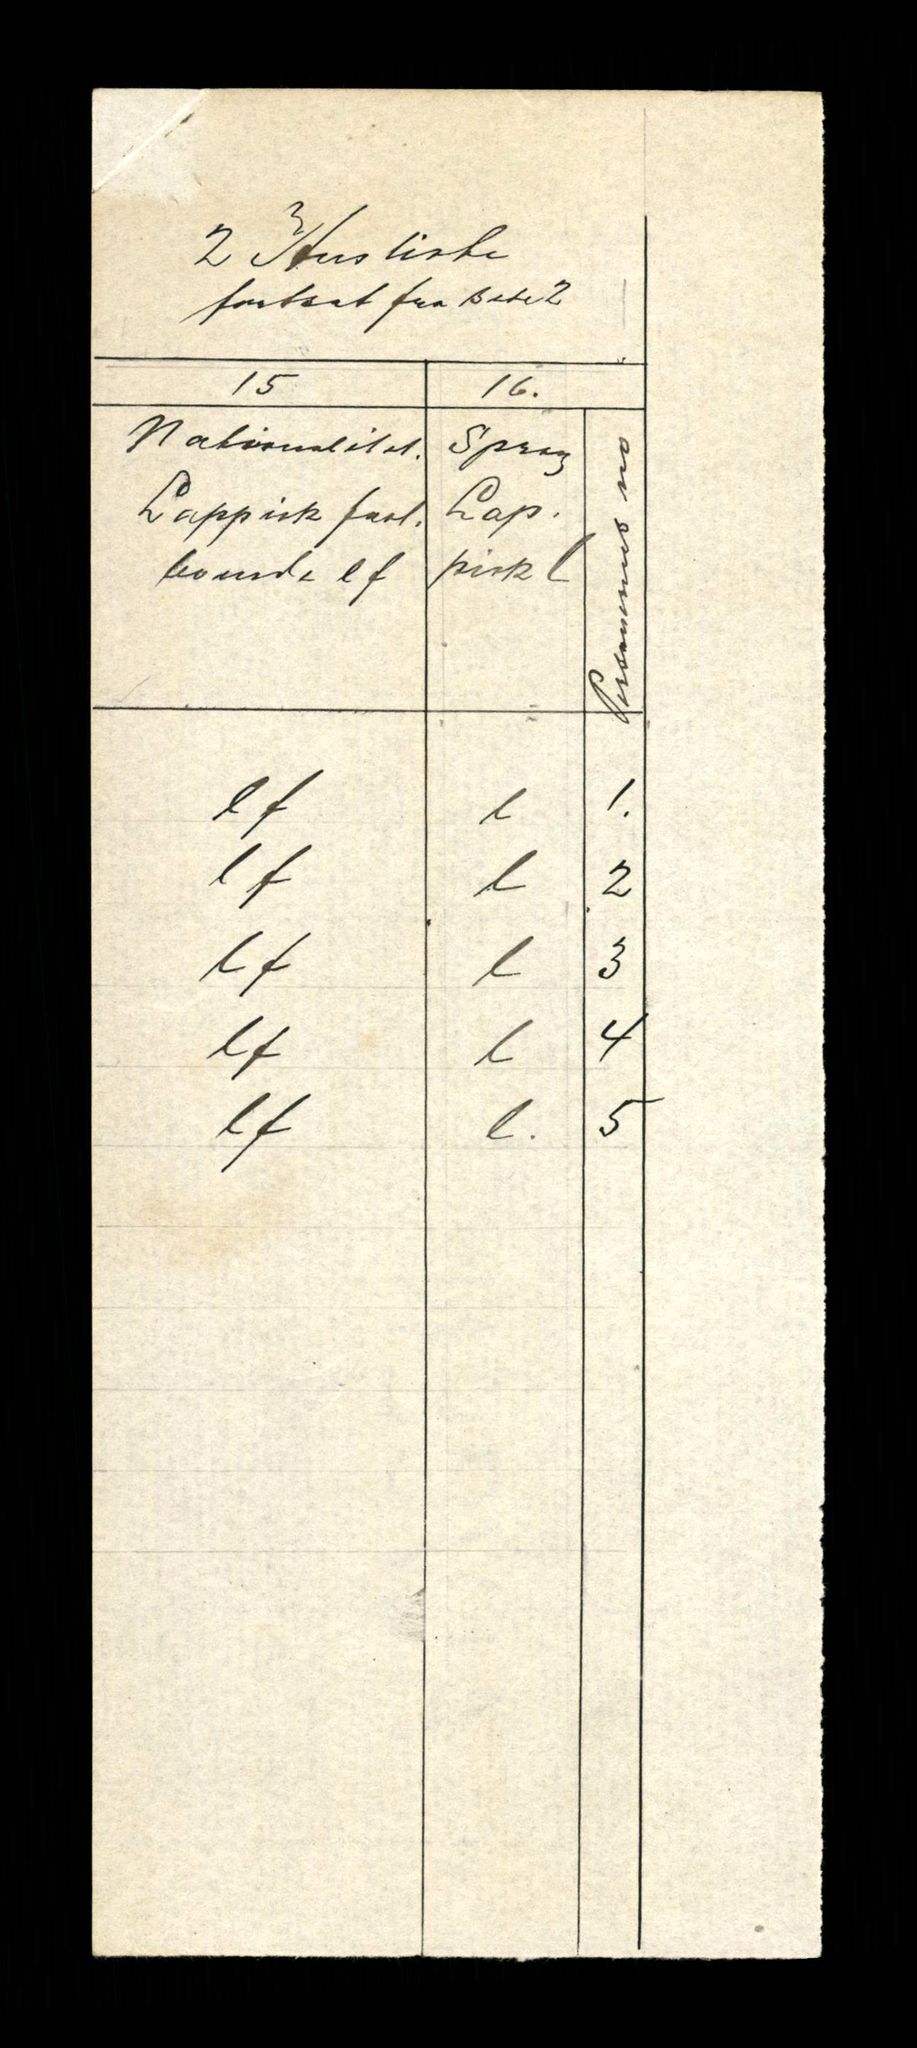 2 Husliste
fortsat fra Side 2
15 16.
Nationalitet. Sprog
Lappisk fast. Lap.
boende lf pisk l
Personernes no
lf l 1.
lf l 2
lf l 3
lf l 4
lf l. 5